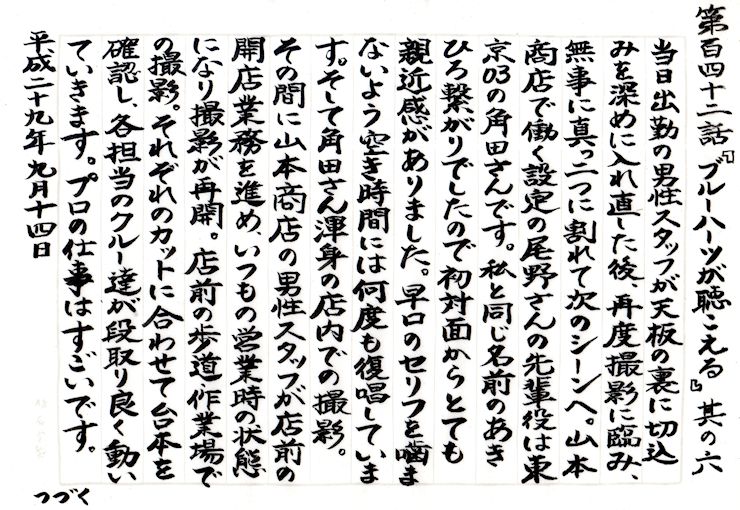 第百四十二話『ブルーハーツが聴こえる』其の六
当日出勤の男性スタッフが天板の裏に切込
みを深めに入れ直した後、再度撮影に臨み、
無事に真っ二つに割れて次のシーンへ。山本
商店で働く設定の尾野さんの先輩役は東
京03の角田さんです。私と同じ名前のあき
ひろ繋がりでしたので初対面からとても
親近感がありました。早口のセリフを噛ま
ないよう空き時間には何度も復唱していま
す。そして角田さん渾身の店内での撮影。
その間に山本商店の男性スタッフが店前の
開店業務を進め、いつもの営業時の状態
になり撮影が再開。店前の歩道、作業場で
の撮影。それぞれのカットに合わせて台本を
確認し、各担当のクルー達が段取り良く動い
ていきます。プロの仕事はすごいです。
平成二十九年九月十四日
つづく